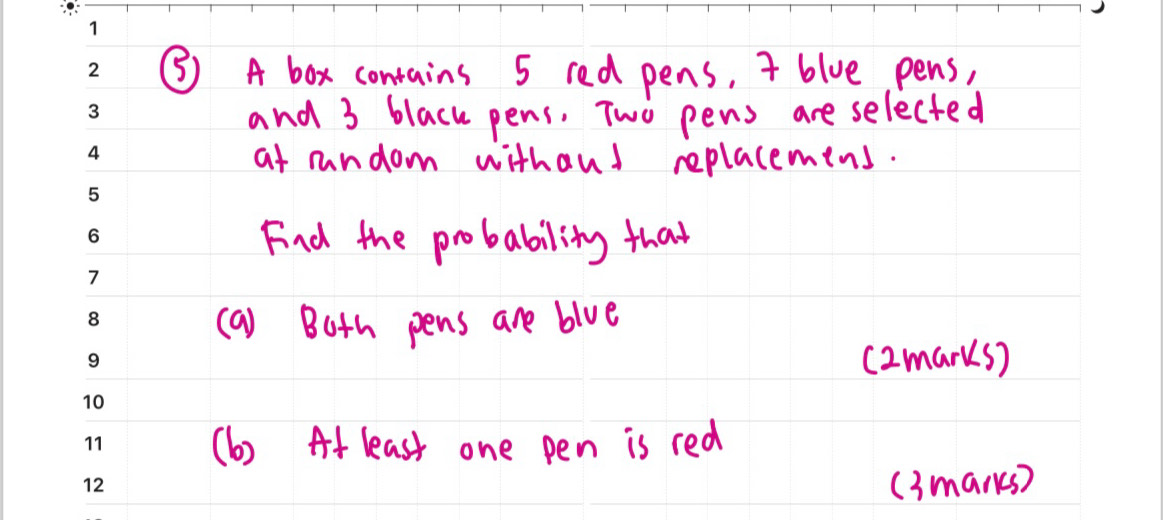 1
2 (5) A box contains 5 red pens, 7 blue pens,
3 and 3 black pens. Two pens are selected
4 at random without replacement.
5
6 Find the probability that
7
8 (a) Both pens are blue
9 (2 marks)
10
11 (b) At least one pen is red
12 (3 marks)